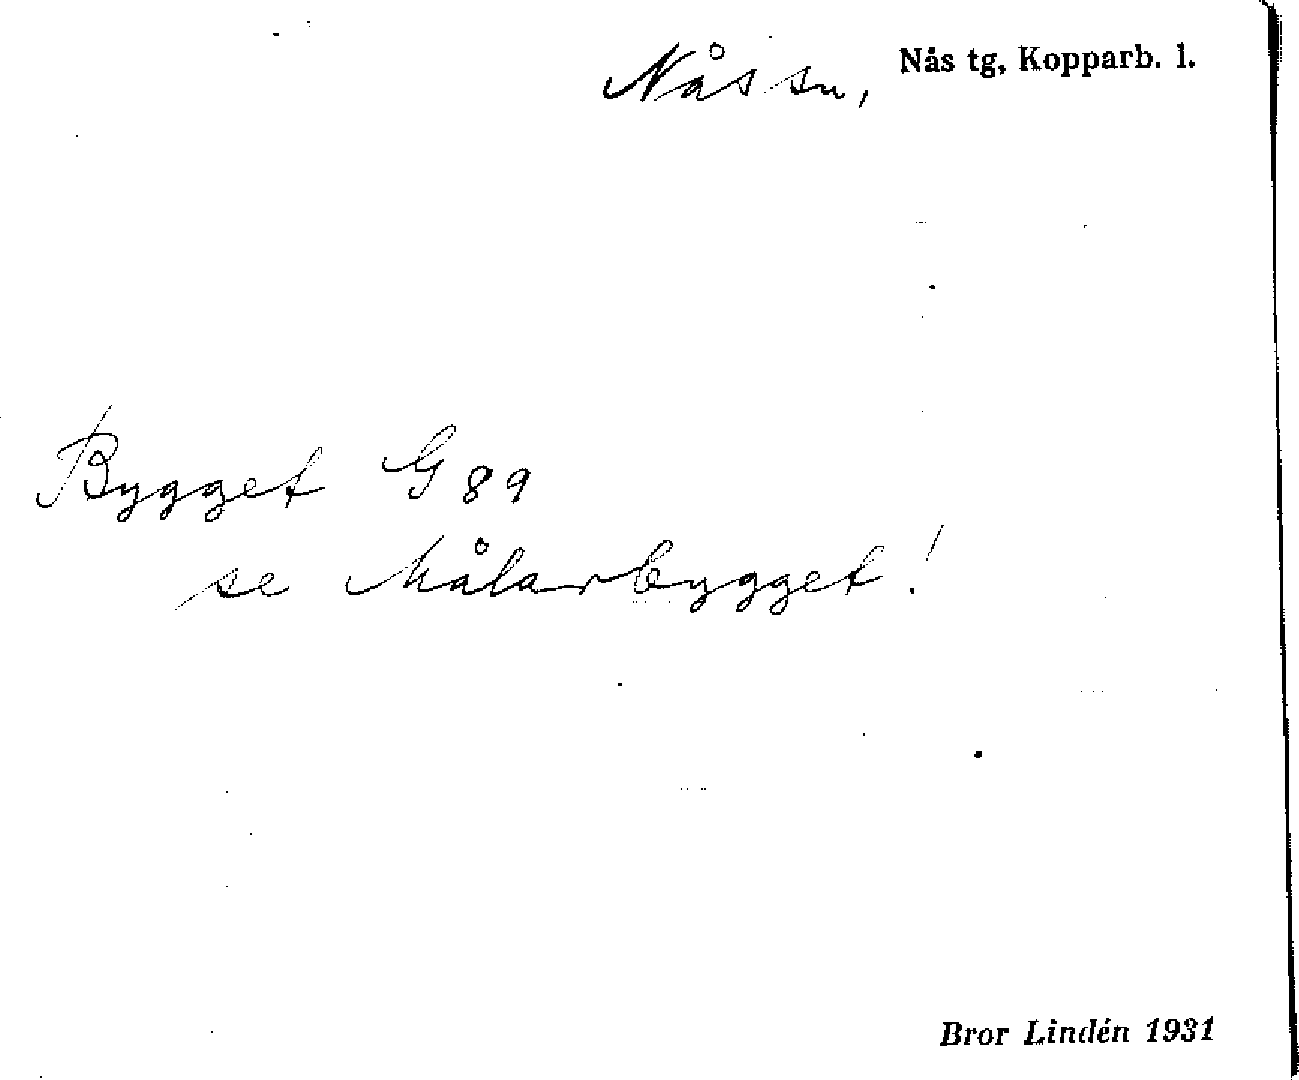 Nås sn, Nås tg, Kopparb. l.
Bygget G 89
se Målarbygget!
Bror Lindén 1931